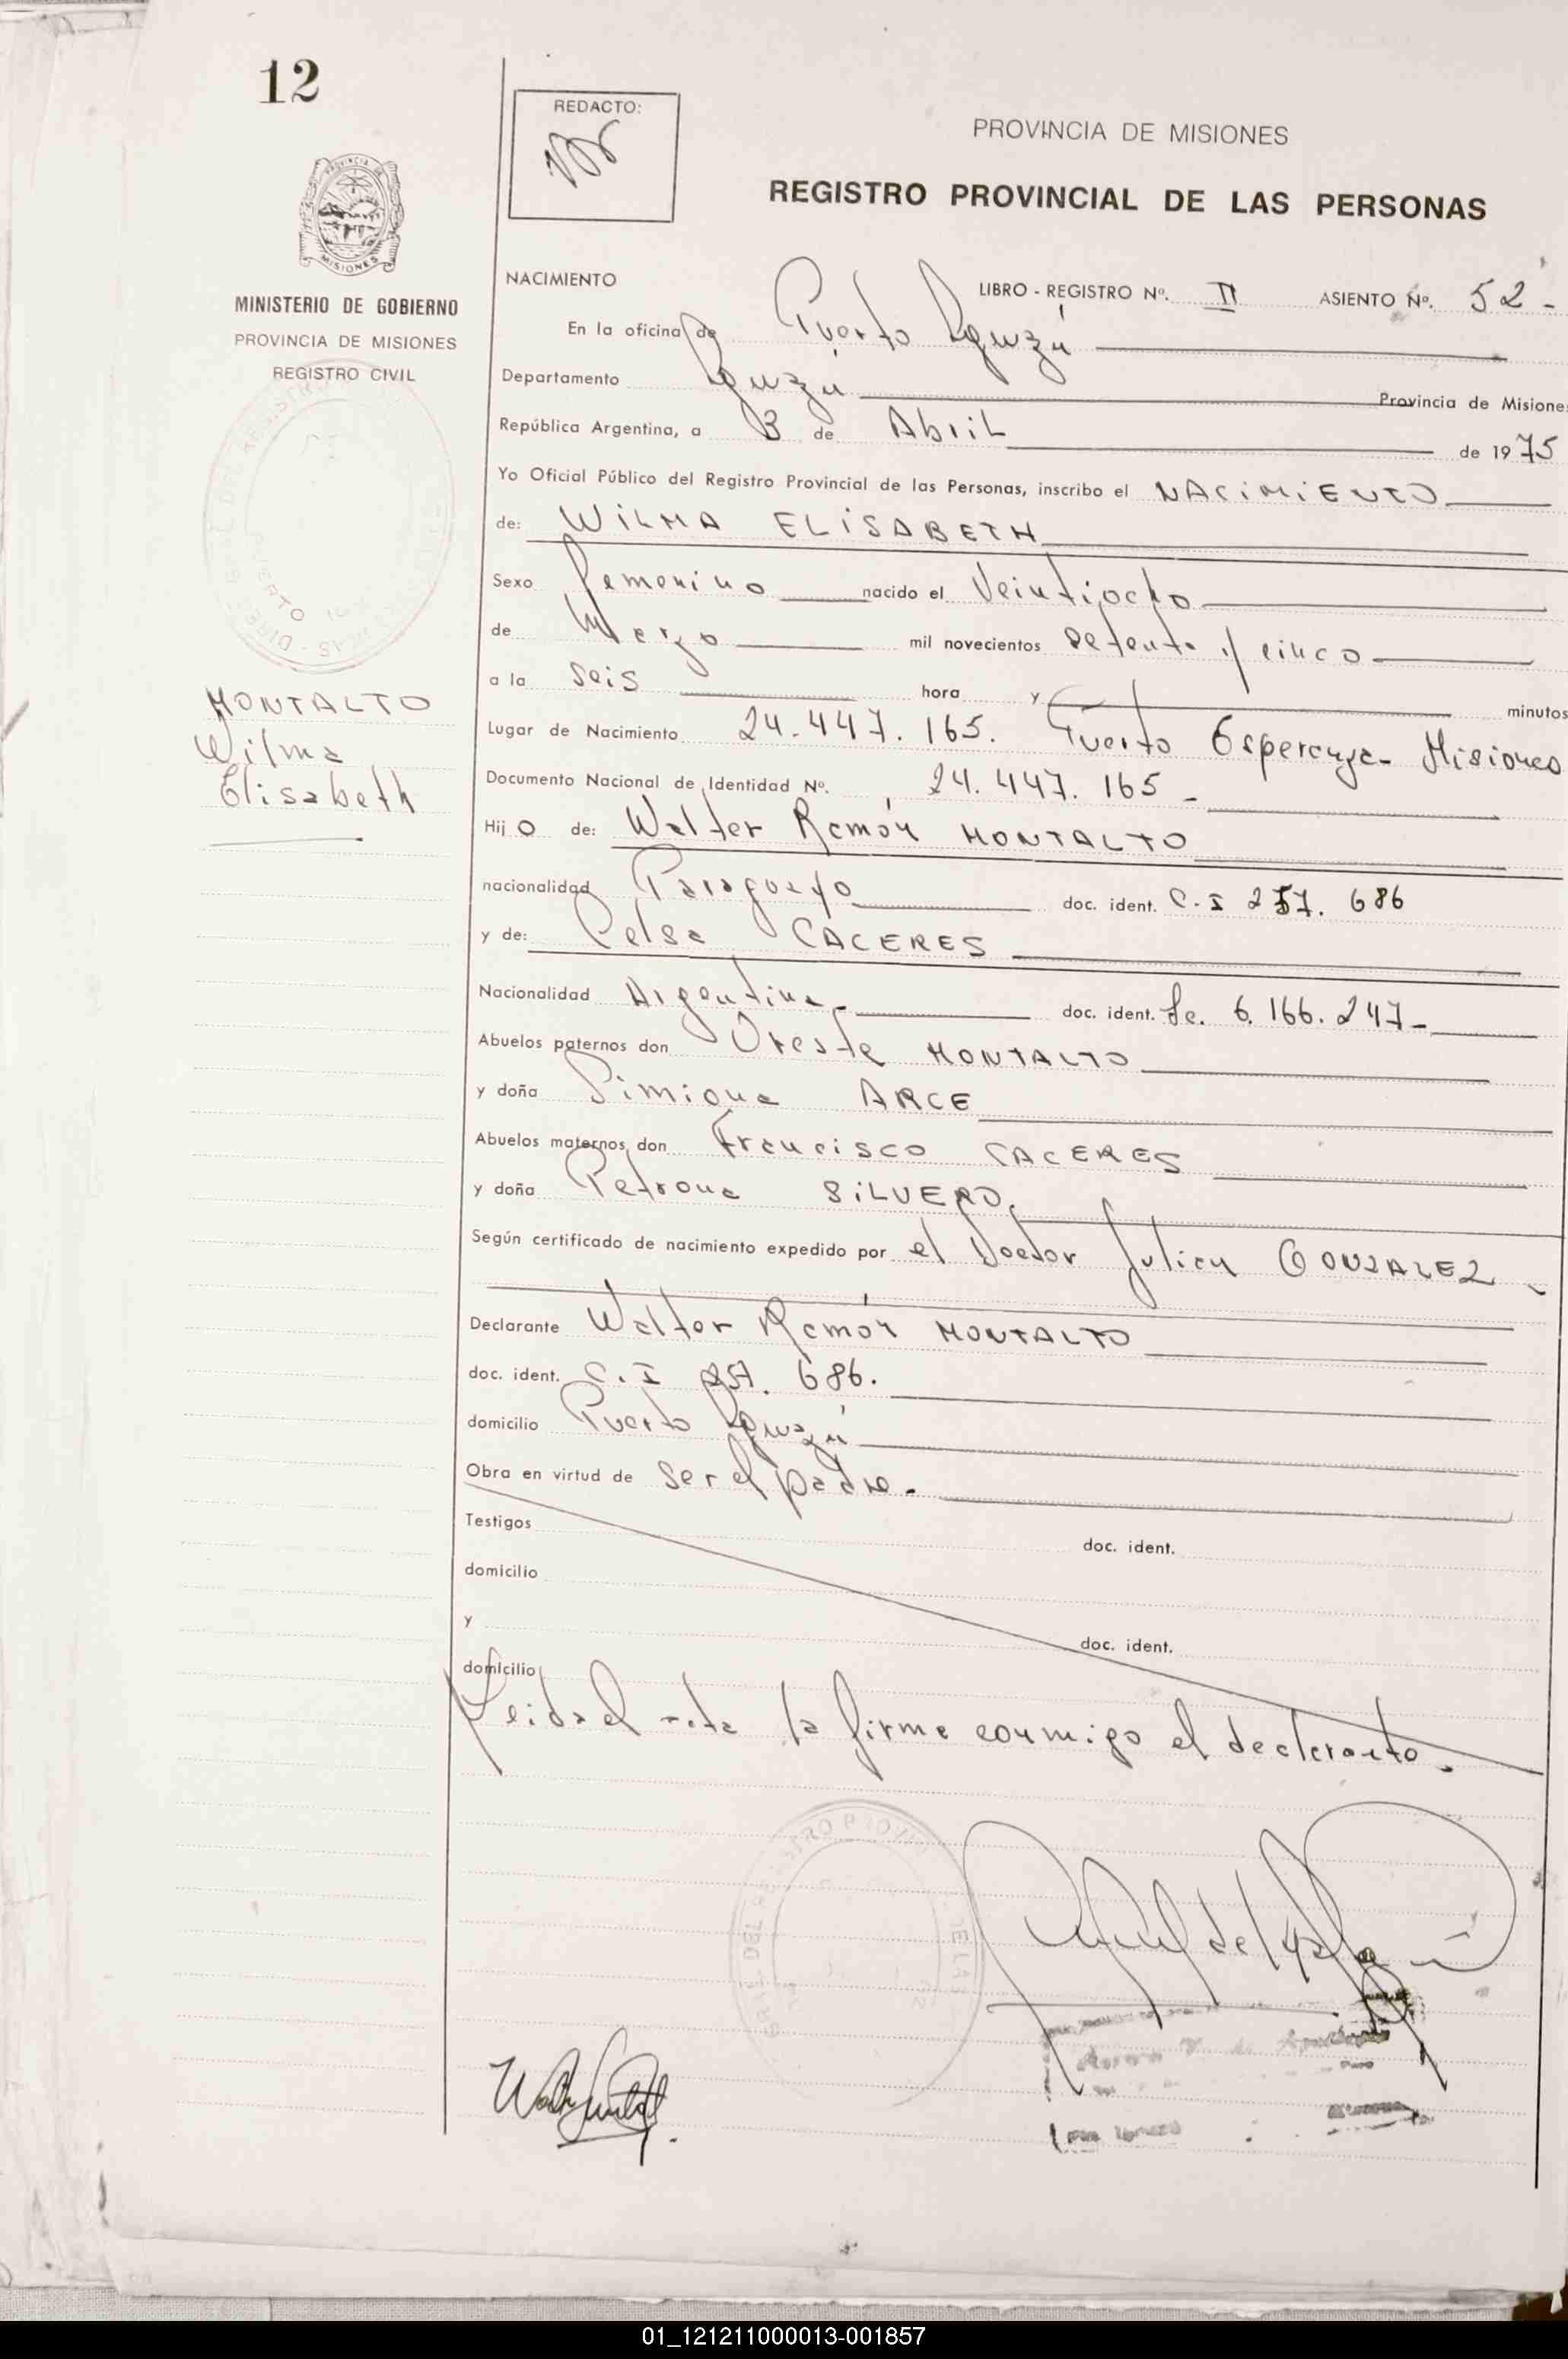 12
REDACTO:
PROVINCIA DE MISIONES
REGISTRO PROVINCIAL DE LAS PERSONAS
MISIONES
MINISTERIO DE GOBIERNO
PROVINCIA DE MISIONES
REGISTRO CIVIL
MONTALTO
Wilma
Elisabeth
NACIMIENTO LIBRO - REGISTRO Nº. II ASIENTO Nº. 52 -
En la oficina de Puerto Iguazú
Departamento Iguazú Provincia de Misiones
República Argentina, a 3 de Abril de 1975
Yo Oficial Público del Registro Provincial de las Personas, inscribo el NACIMIENTO
de: WILMA ELISABETH
Sexo Femenino nacido el Veintiocho
de Marzo mil novecientos setenta y cinco
a la seis hora y minutos
Lugar de Nacimiento 24.447.165. Puerto Esperanza - Misiones
Documento Nacional de Identidad Nº. 24.447.165 -
Hijo de: Walter Ramón MONTALTO
nacionalidad Paraguayo doc. ident. C.I 257.686
y de: Celsa CACERES
Nacionalidad Argentina - doc. ident. Lc. 6.166.247 -
Abuelos paternos don Oreste MONTALTO
y doña Simiona ARCE
Abuelos maternos don Francisco CACERES
y doña Petrona SILVERO.
Según certificado de nacimiento expedido por el Doctor Julian GONZALEZ -
Declarante Walter Ramón MONTALTO
doc. ident. C.I 257.686.
domicilio Puerto Iguazú
Obra en virtud de ser el padre.
Testigos doc. ident.
domicilio
y doc. ident.
domicilio
Leida el acta la firma conmigo el declarante.
01_121211000013-001857